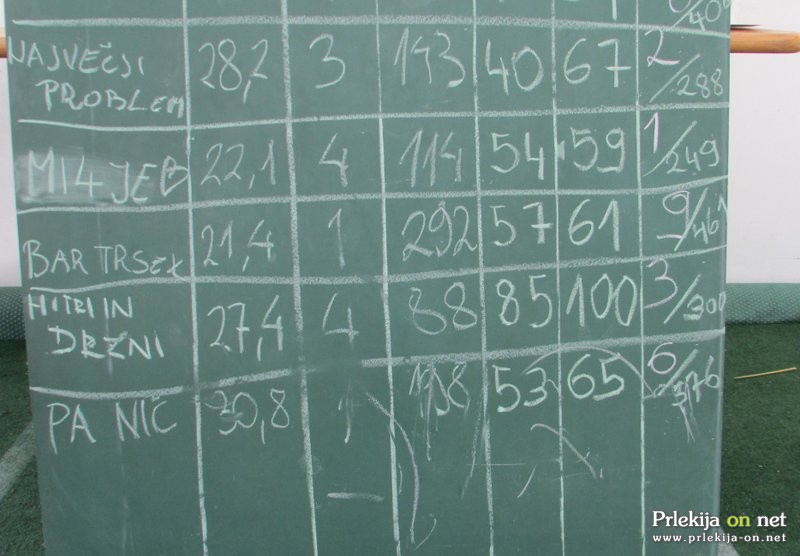 0/40
NAJVEČJI 28,2 3 193 40 67 2/288
PROBLEM
MI4JEB 22,1 4 114 54 59 1/249
BAR TRSEK 21,4 1 292 57 61 9/461
HITRI IN 27,4 4 88 85 100 3/300
DRZNI
PA NIČ 30,8 1 53 65 6/376
Prlekija on net
www.prlekija-on.net